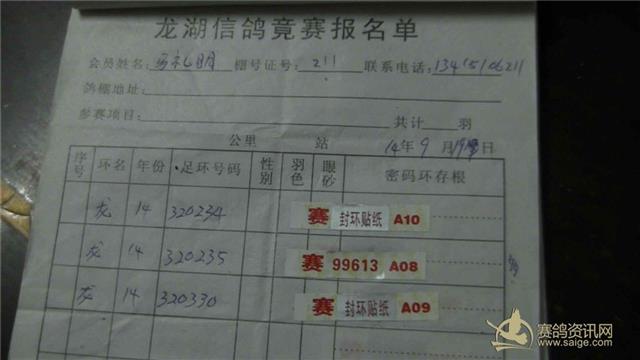 龙湖信鸽竟赛报名单
会员姓名: 棚号证号: 211 联系电话:
鸽棚地址:
参赛项目: 共计 羽
公里 站 14年9月 日
序号 环名 年份 足环号码 性别 羽色 眼砂 密码环存根
龙 14 320234 赛 封环贴纸 A10
龙 14 320235 赛 99613 A08
龙 14 320330 赛 封环贴纸 A09
赛鸽资讯网
www.saige.com